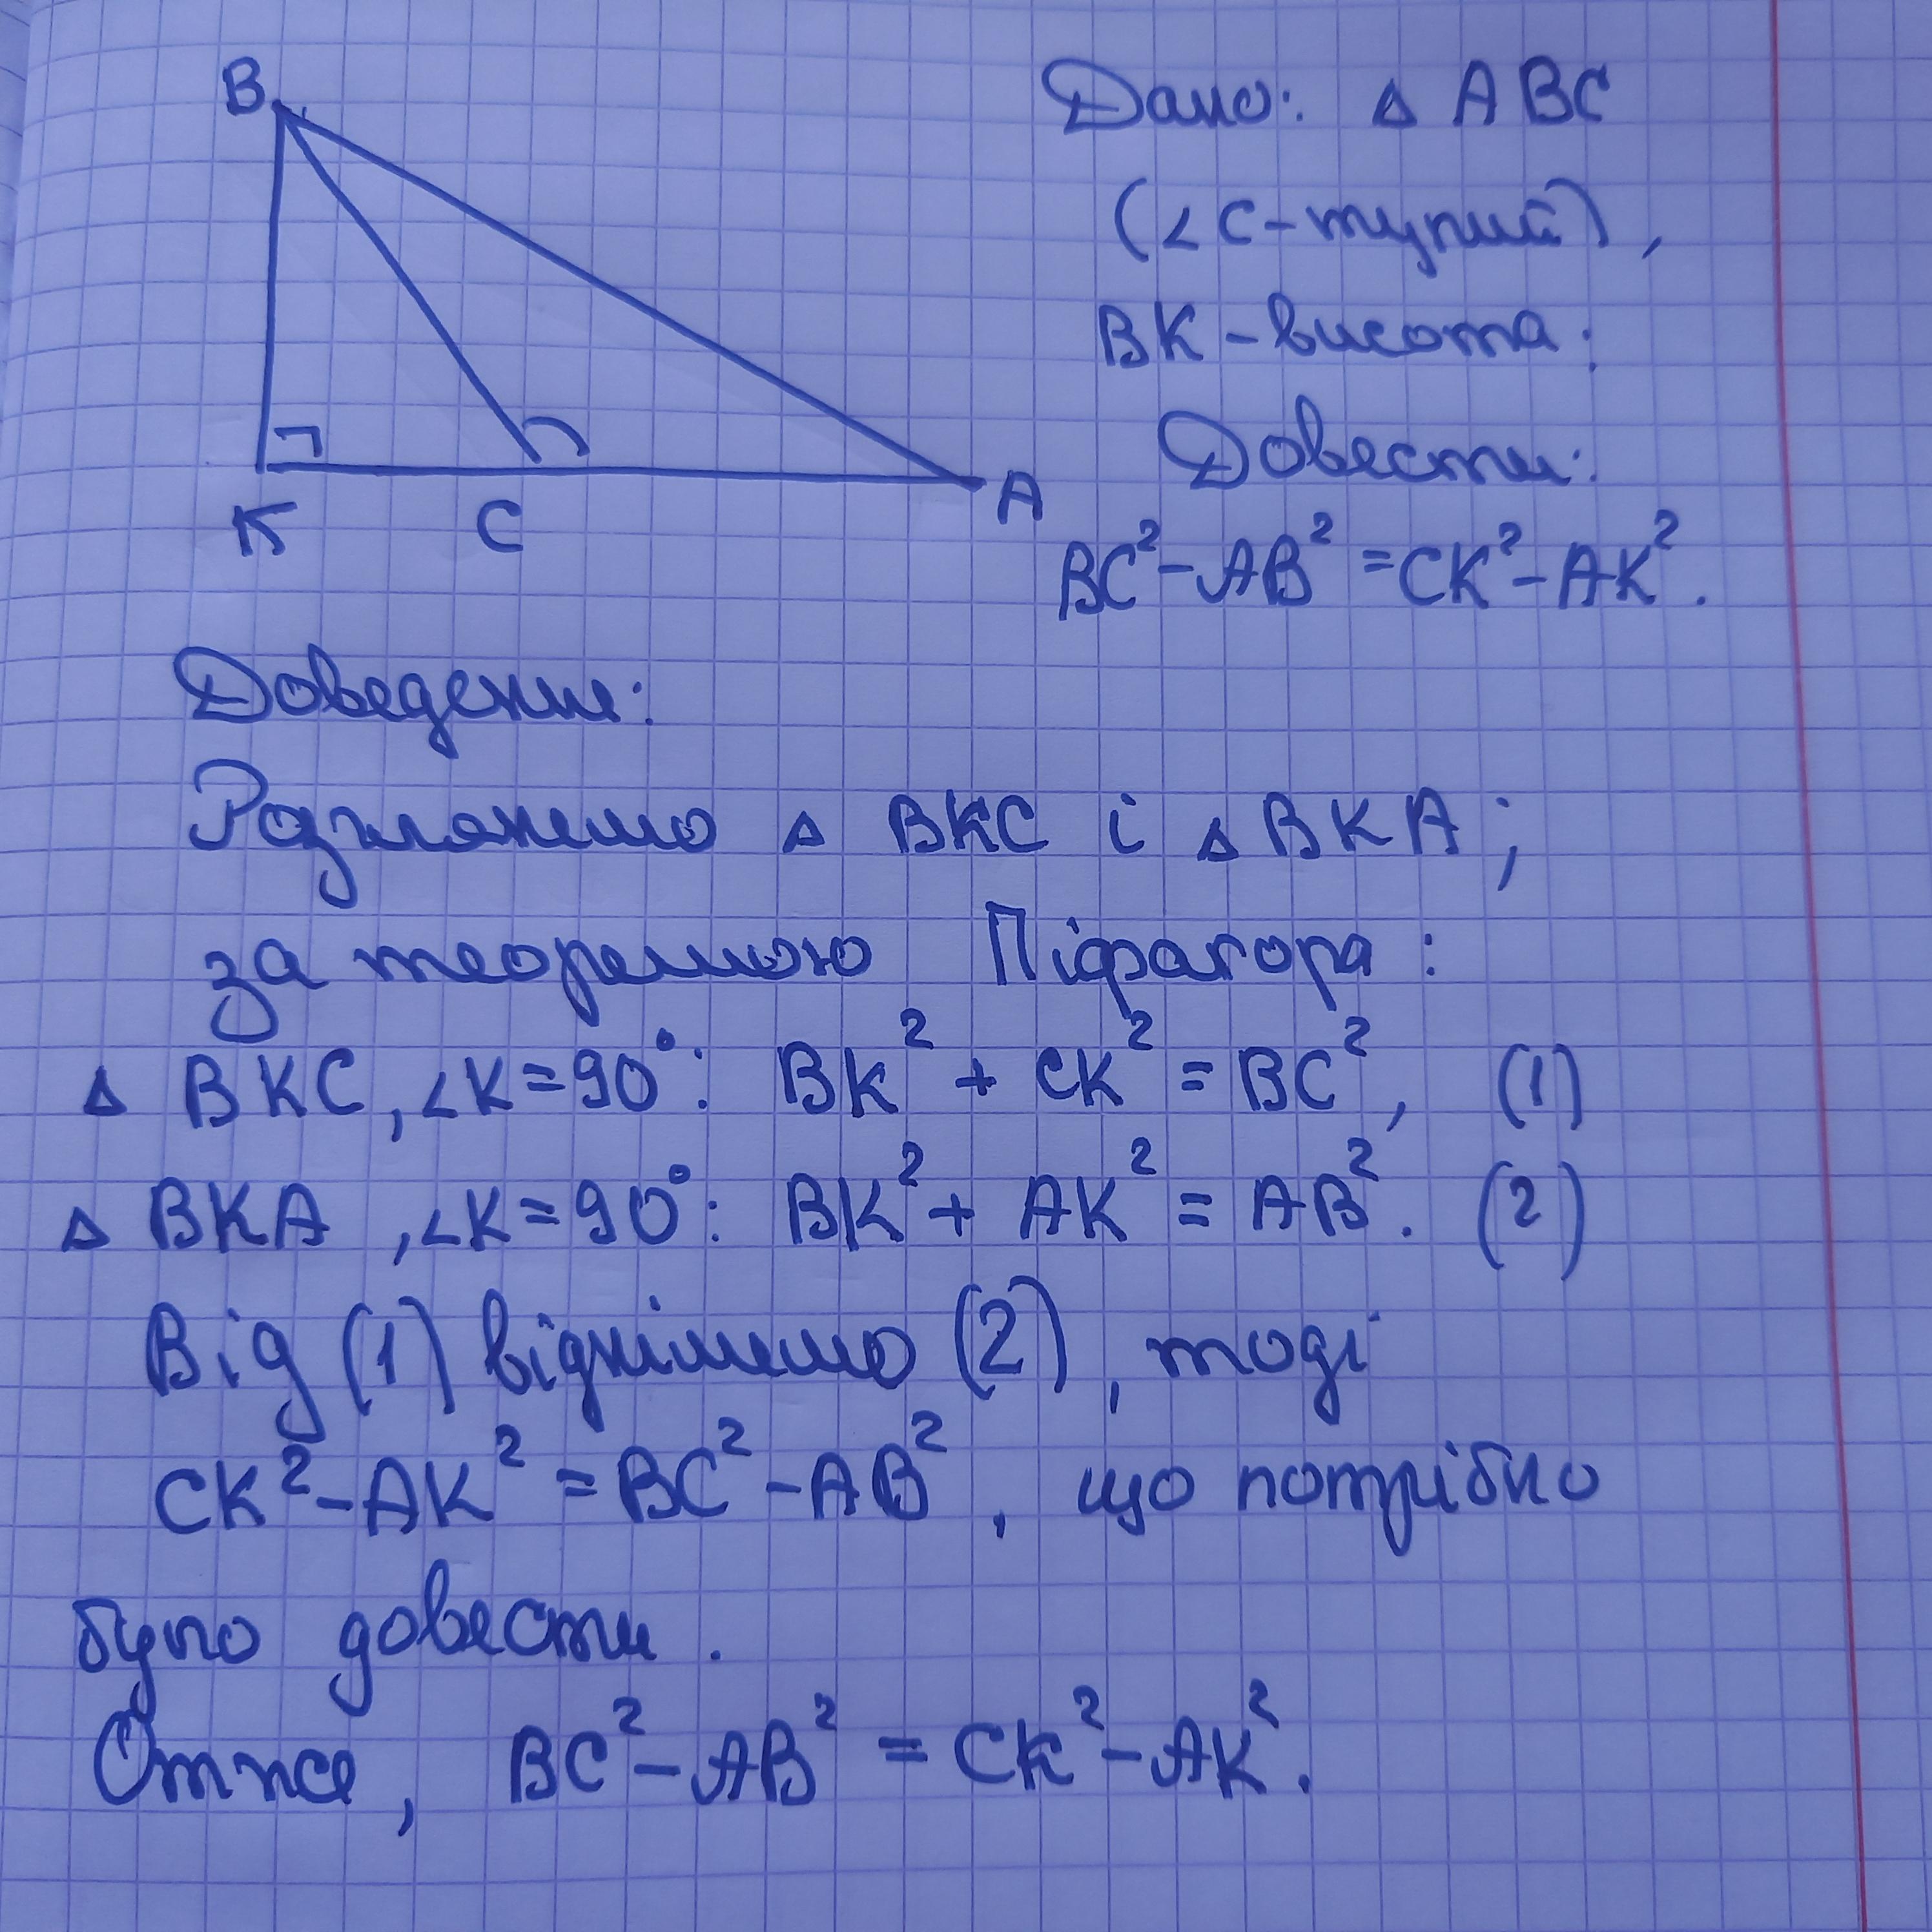 B
Дано: △ ABC
(∠C-тупий),
BK-висота;
Довести:
K C A
BC²-AB² = CK²-AK².
Доведення:
Розглянемо △ BKC і △ BKA;
за теоремою Піфагора:
△ BKC, ∠K=90°: BK² + CK² = BC², (1)
△ BKA, ∠K=90°: BK² + AK² = AB². (2)
Від (1) віднімемо (2), тоді
CK²-AK² = BC²-AB², що потрібно
було довести.
Отже, BC²-AB² = CK²-AK².